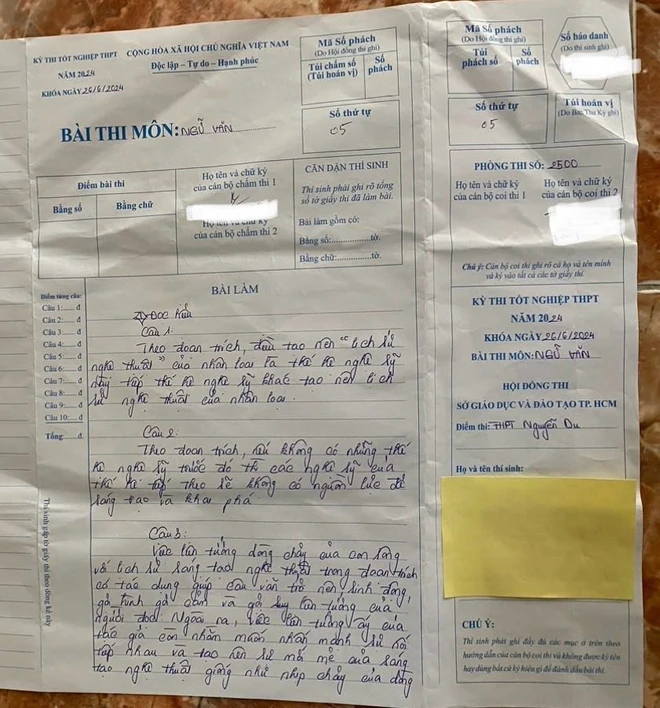 KỲ THI TỐT NGHIỆP THPT
NĂM 2024
KHÓA NGÀY 26/6/2024
CỘNG HÒA XÃ HỘI CHỦ NGHĨA VIỆT NAM
Độc lập – Tự do – Hạnh phúc
BÀI THI MÔN: NGỮ VĂN
Mã Số phách
(Do Hội đồng thi ghi)
Túi chấm số
(Túi hoán vị)
Số
phách
Số thứ tự
05
Điểm bài thi
Bằng số
Bằng chữ
Họ tên và chữ ký
của cán bộ chấm thi 1
Họ tên và chữ ký
của cán bộ chấm thi 2
CĂN DẶN THÍ SINH
Thí sinh phải ghi rõ tổng
số tờ giấy thi đã làm bài.
Bài làm gồm có:
Bằng số:..............tờ.
Bằng chữ:..............tờ.
Điểm từng câu:
Câu 1:..... đ
Câu 2:..... đ
Câu 3:..... đ
Câu 4:..... đ
Câu 5:..... đ
Câu 6:..... đ
Câu 7:..... đ
Câu 8:..... đ
Câu 9:..... đ
Câu 10:..... đ
Tổng:.....đ
Thí sinh gấp tờ giấy thi theo dòng kẻ này
BÀI LÀM
Đọc hiểu
Câu 1:
Theo đoạn trích, điều tạo nên "lịch sử
nghệ thuật" của nhân loại là thế hệ nghệ sỹ
này tiếp thế hệ nghệ sỹ khác tạo nên lịch
sử nghệ thuật của nhân loại.
Câu 2:
Theo đoạn trích, nếu không có những thế
hệ nghệ sỹ trước đó thì các nghệ sỹ của
thế hệ tiếp theo sẽ không có nguồn lực để
sáng tạo và khai phá
Câu 3:
Việc liên tưởng dòng chảy của con sông
với lịch sử sáng tạo nghệ thuật trong đoạn trích
có tác dụng giúp câu văn trở nên sinh động,
gợi hình gợi cảm và gợi suy liên tưởng của
người đọc. Ngoài ra, việc liên tưởng ấy của
tác giả còn nhằm muốn nhấn mạnh sự nối
tiếp nhau và tạo nên sự mới mẻ của sáng
tạo nghệ thuật giống như nhịp chảy của dòng
Mã Số phách
(Do Hội đồng thi ghi)
Túi
phách số
Số
phách
Số báo danh
(Do thí sinh ghi)
Số thứ tự
05
Túi hoán vị
(Do Ban Thư Ký ghi)
PHÒNG THI SỐ: 2500
Họ tên và chữ ký
của cán bộ coi thi 1
Họ tên và chữ ký
của cán bộ coi thi 2
Chú ý: Cán bộ coi thi ghi rõ cả họ và tên mình
và ký vào tất cả các tờ giấy thi.
KỲ THI TỐT NGHIỆP THPT
NĂM 2024
KHÓA NGÀY 26/6/2024
BÀI THI MÔN: NGỮ VĂN
HỘI ĐỒNG THI
SỞ GIÁO DỤC VÀ ĐÀO TẠO TP. HCM
Điểm thi: THPT Nguyễn Du
Họ và tên thí sinh:
CHÚ Ý:
Thí sinh phải ghi đầy đủ các mục ở trên theo
hướng dẫn của cán bộ coi thi và không được ký tên
hay dùng bất cứ ký hiệu gì để đánh dấu bài thi.